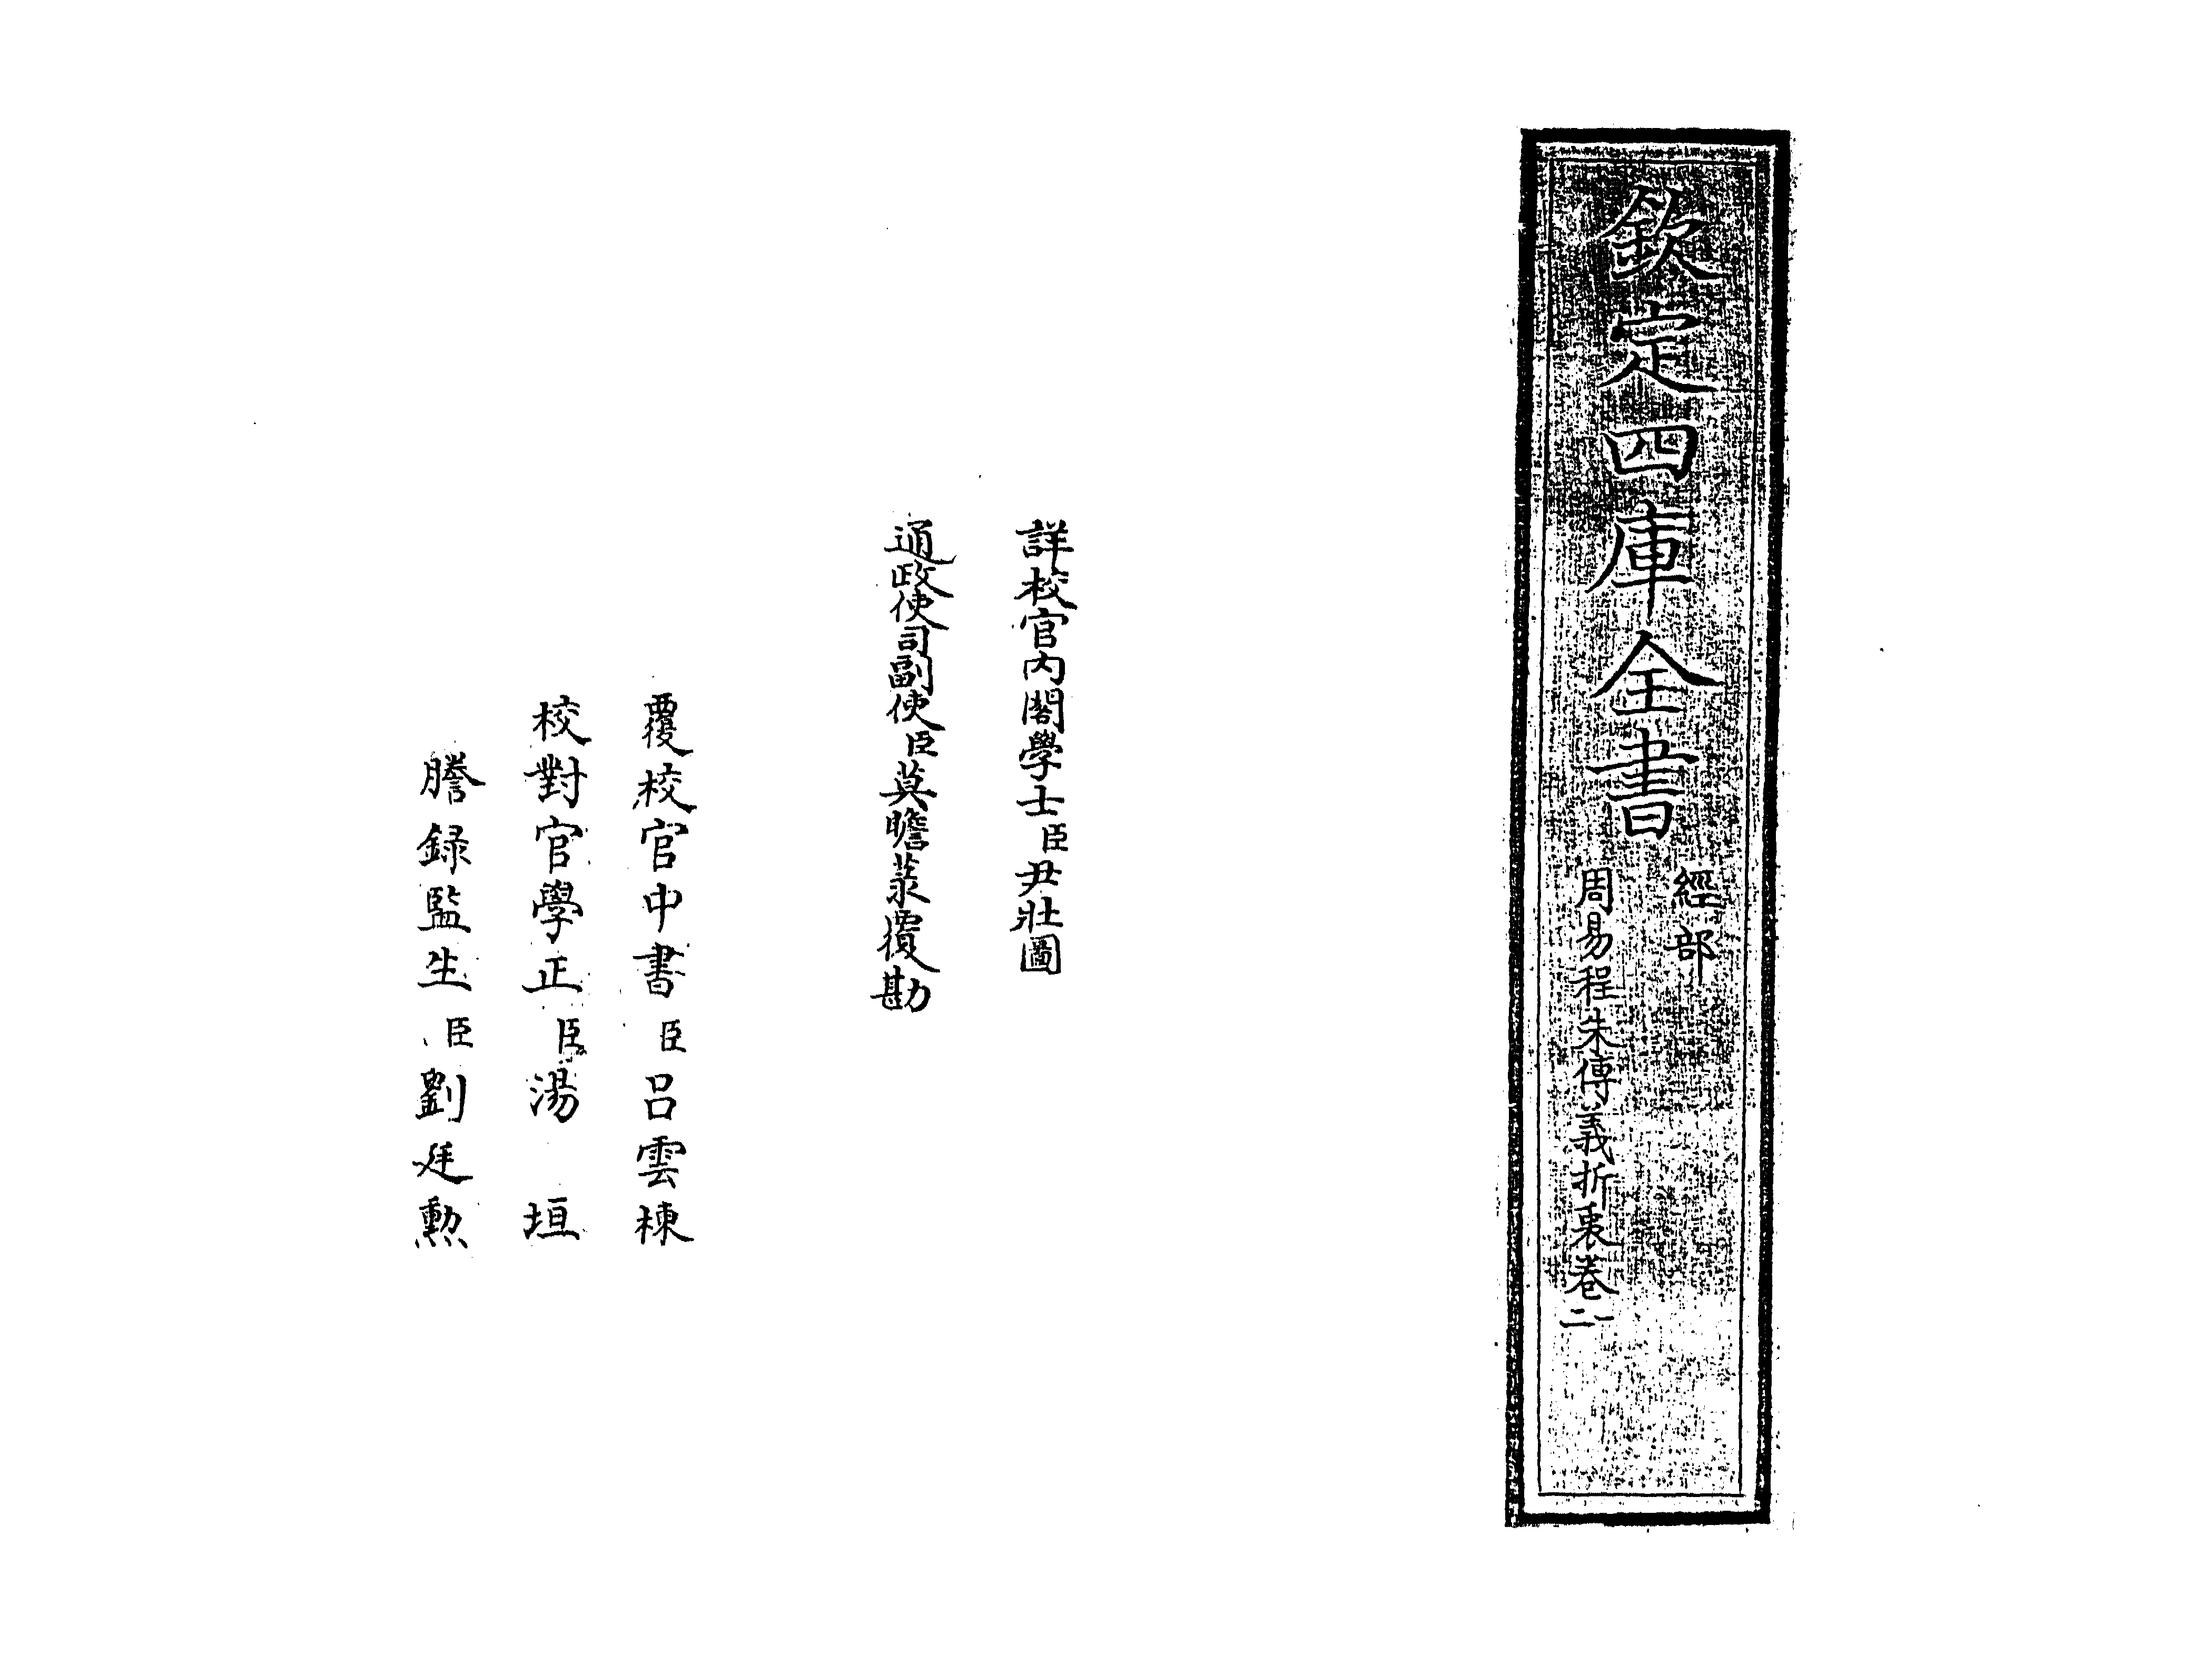 欽定四庫全書
經部
周易程朱傳義折衷卷二
詳校官内閣學士臣尹壯圖
通政使司副使臣莫瞻菉覆勘
覆校官中書臣呂雲棟
校對官學正臣湯垣
謄録監生臣劉廷勲